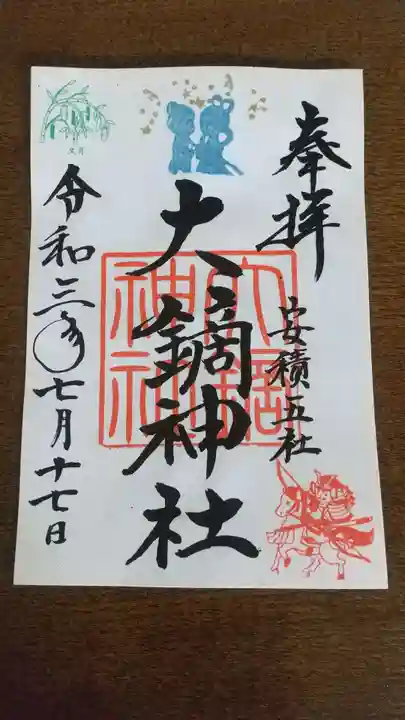 奉拝
安積五社
大鏑神社
大鏑神社
令和三年七月十七日
文月